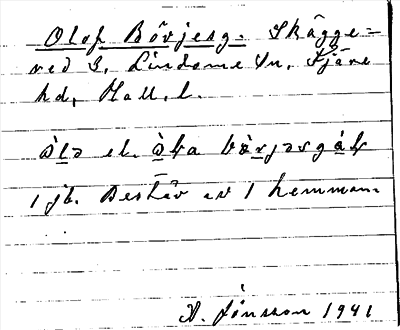 Olof Börjesg. Skägge=
red 3, Lindome sn, Fjäre
hd, Hall. l.
ə el. bərjəsgå
1 jb. Består av 1 hemman.
A. Jönsson 1941